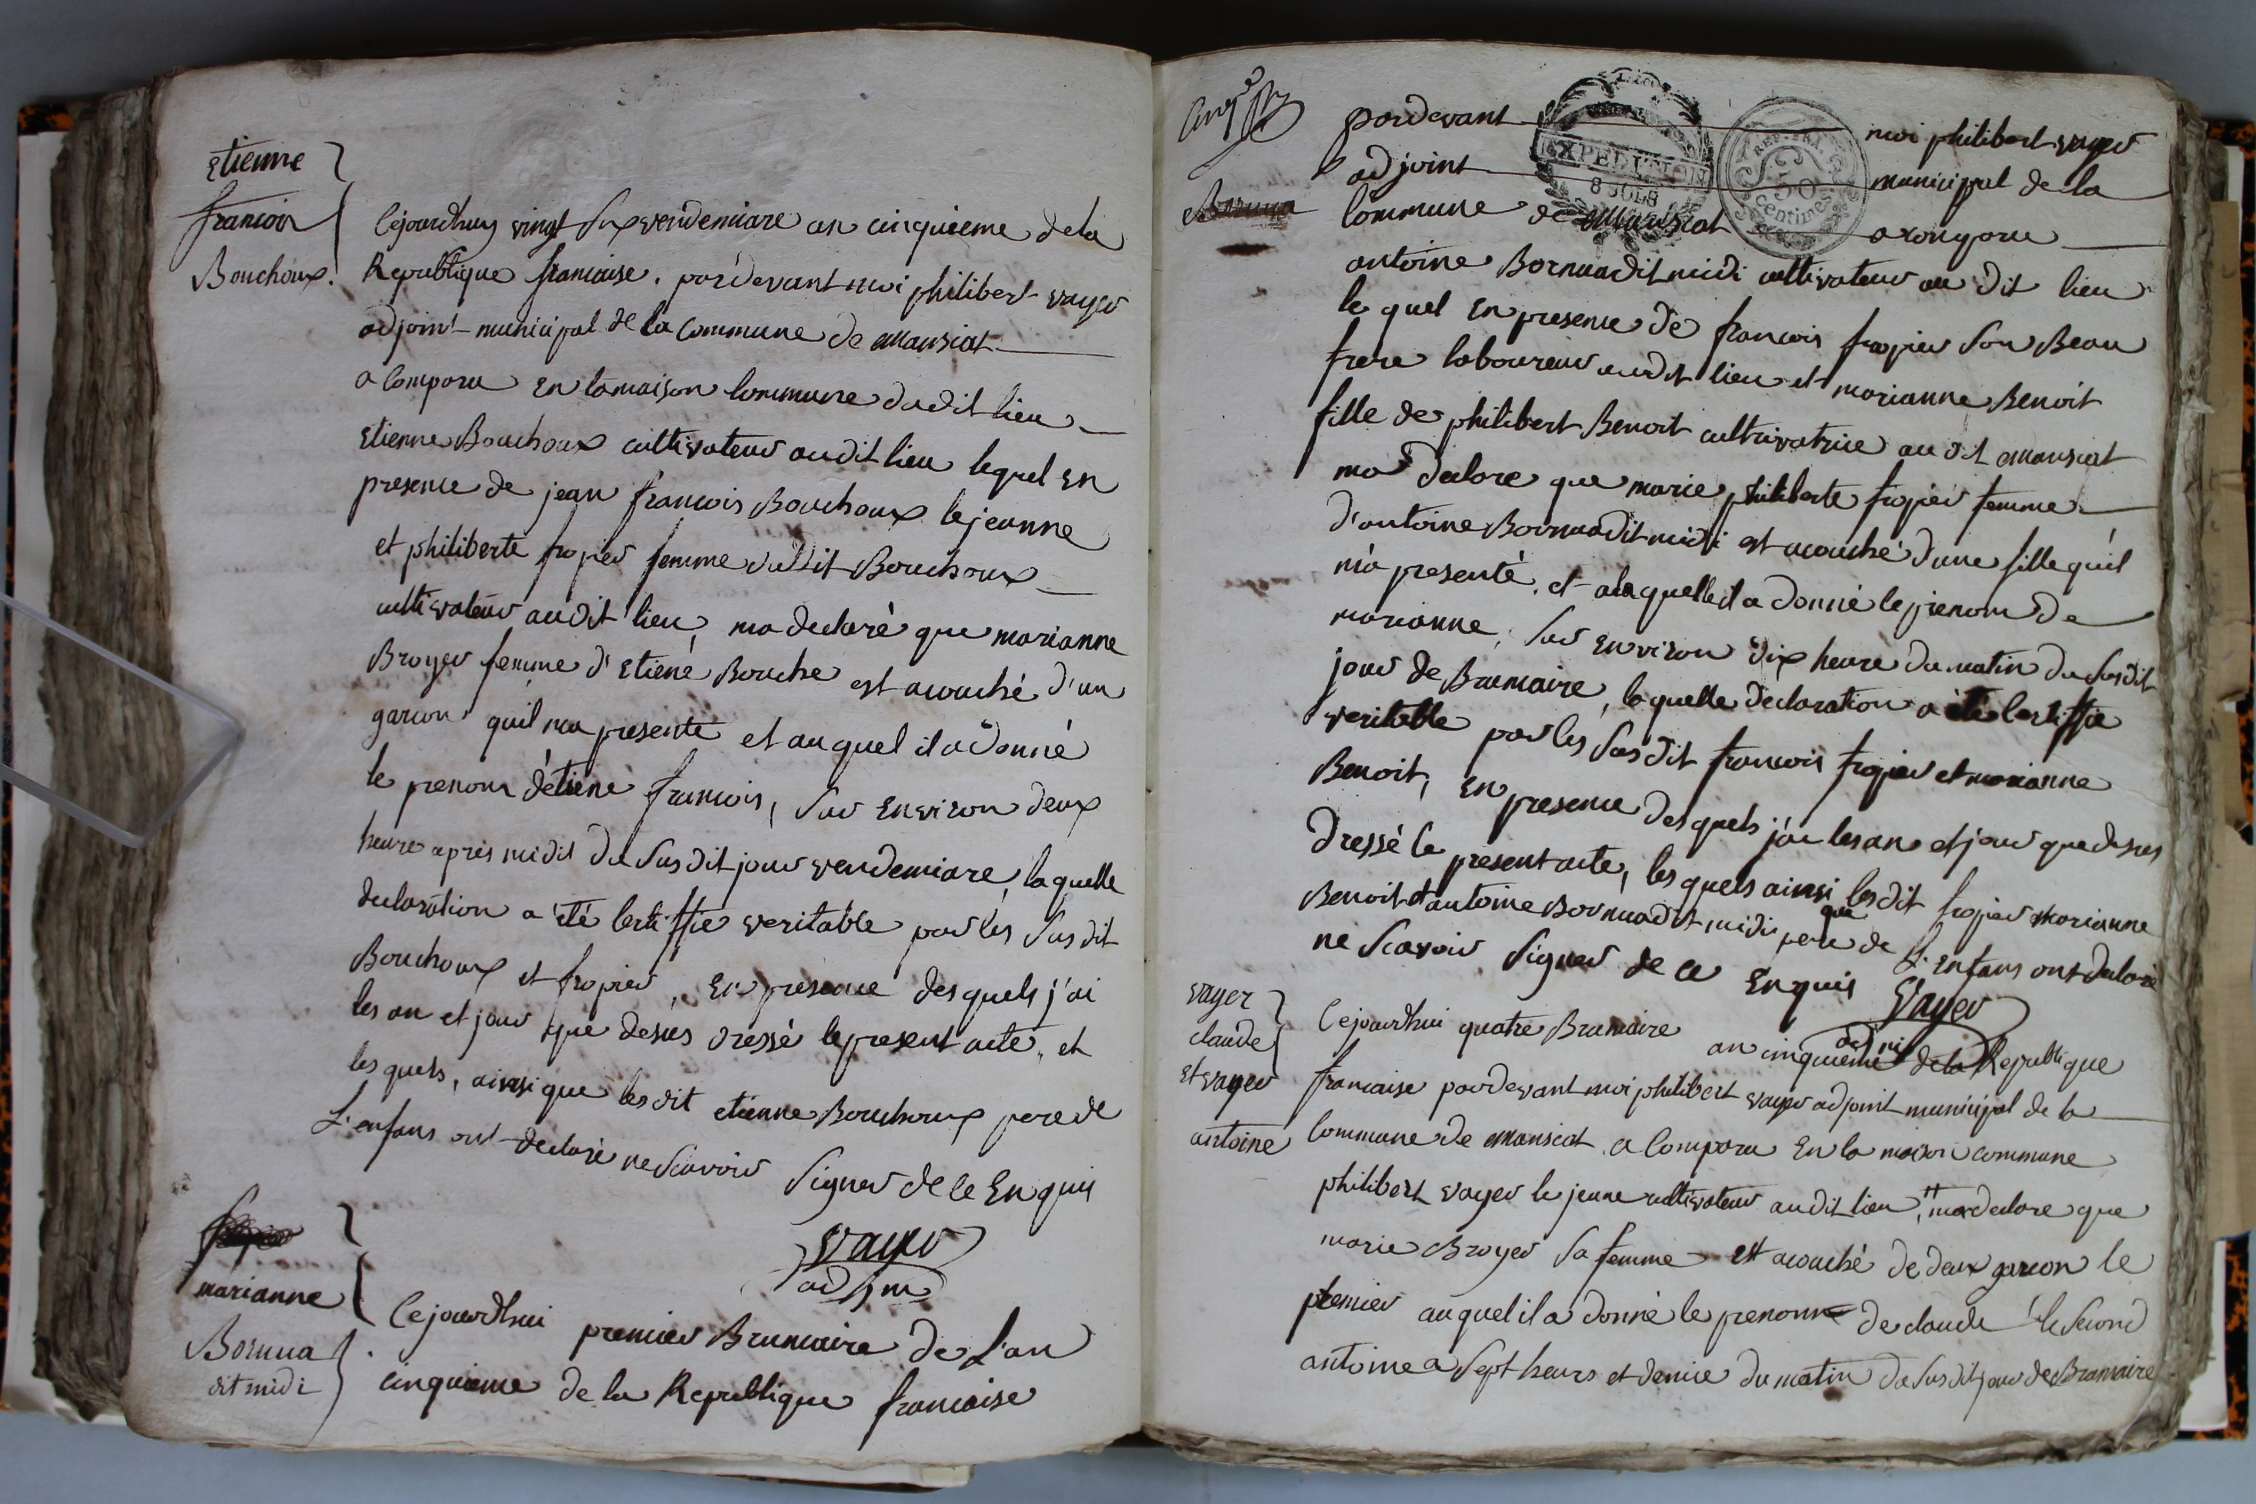 Etienne
francois
Bouchoux.
Cejourdhuy vingt six vendemiare an cinquieme de la
Republique francaise. pardevant moi philibert vayer
adjoint municipal de la commune de mansiat
a comparu en la maison commune dudit lieu
Etienne Bouchoux cultivateur audit lieu lequel en
presence de jean francois Bouchoux le jeunne
et philiberte fropier femme dudit Bouchoux
cultivateur audit lieu, ma declaré que marianne
Broyer femme d'Etiene Bouche est acouché d'un
garcon quil ma presenté et auquel il a donné
le prenom d'étiene francois, sur environ deux
heure apres midit du susdit jour vendemiare, laquelle
declaration a été certiffié veritable par les susdit
Bouchoux et fropier, en presence desquels j'ai
les an et jour que desus dressé le present acte, et
les quels, ainsi que lesdit etienne Bouchoux pere de
L'enfans ont declaré ne scavoir signer de ce Enquis
vayer
adj m
marianne
Bornua
dit midi
Cejourdhui premier Brumaire de L'an
cinquieme de la Republique francaise
EXPEDITION
8 SOLS
REP. FRA.
50
centimes
pardevant moi philibert vayer
adjoint municipal de la
commune de mansiat a comparu
antoine Bornua dit midi cultivateur au dit lieu
le quel en presence de francois fropier son Beau
frere laboureur audit lieu et marianne Benoit
fille de philibert Benoit cultivatrice au dit mansiat
ma declare que marie philiberte fropier femme
d'antoine Bornua dit midi est acouché d'une fille qu'il
m'a presenté, et a laquelle il a donné le prenom de
marianne, sur environ dix heure du matin du susdit
jour de Brumaire, laquelle declaration a été certiffié
veritable par les susdit francois fropier et marianne
Benoit, en presence desquels j'ai les an et jour que desus
dressé le present acte, les quels ainsi que lesdit fropier marianne
Benoit et antoine Bornua dit midi pere de L'enfans ont declaré
ne scavoir signer de ce Enquis vayer
vayer
claude
et vayer
antoine
Cejourdhui quatre Brumaire an cinquieme de la Republique
francaise pardevant moi philibert vayer adjoint municipal de la
commune de mansiat a comparu en la maison commune
philibert vayer le jeune cultivateur audit lieu, ma declare que
marie Broyer sa femme est acouché de deux garcon le
premier auquel il a donné le prenom de claude le second
antoine a sept heurs et demie du matin du susdit jour de Brumaire